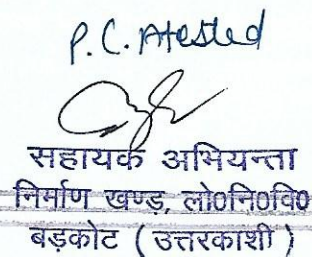 P.C. Attested
सहायक अभियन्ता
निर्माण खण्ड, लो०नि०वि०
बड़कोट ( उत्तरकाशी )